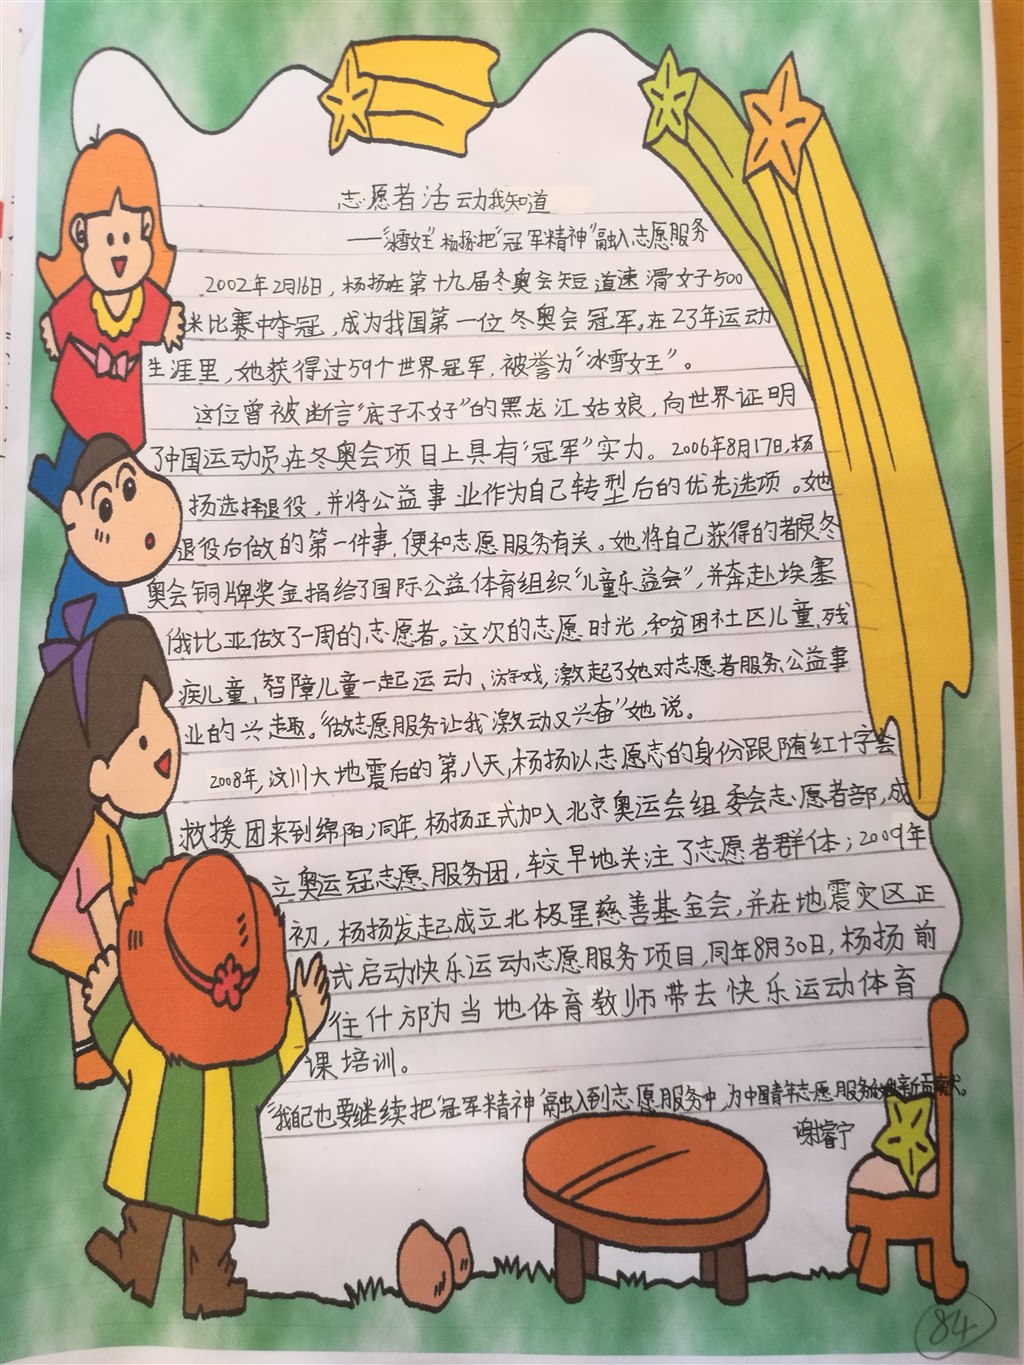 志愿者活动我知道
——“冰雪女王”杨扬把“冠军精神”融入志愿服务
2002年2月16日，杨扬在第十九届冬奥会短道速滑女子500
米比赛中夺冠，成为我国第一位冬奥会冠军。在23年运动
生涯里，她获得过59个世界冠军，被誉为“冰雪女王”。
这位曾被断言“底子不好”的黑龙江姑娘，向世界证明
了中国运动员在冬奥会项目上具有“冠军”实力。2006年8月17日，杨
扬选择退役，并将公益事业作为自己转型后的优先选项。她
退役后做的第一件事，便和志愿服务有关。她将自己获得的都灵冬
奥会铜牌奖金捐给了国际公益体育组织“儿童乐益会”，并奔赴埃塞
俄比亚做了一周的志愿者。这次的志愿时光，和贫困社区儿童、残
疾儿童、智障儿童一起运动、游戏，激起了她对志愿者服务、公益事
业的兴趣。“做志愿服务让我激动又兴奋”她说。
2008年，汶川大地震后的第八天，杨扬以志愿志的身份跟随红十字会
救援团来到绵阳；同年，杨扬正式加入北京奥运会组委会志愿者部，成
立奥运冠志愿服务团，较早地关注了志愿者群体；2009年
初，杨扬发起成立北极星慈善基金会，并在地震灾区正
式启动快乐运动志愿服务项目，同年8月30日，杨扬前
往什邡为当地体育教师带去快乐运动体育
课培训。
“我自己也要继续把“冠军精神”融入到志愿服务中，为中国青年志愿服务
谢睿宁
84